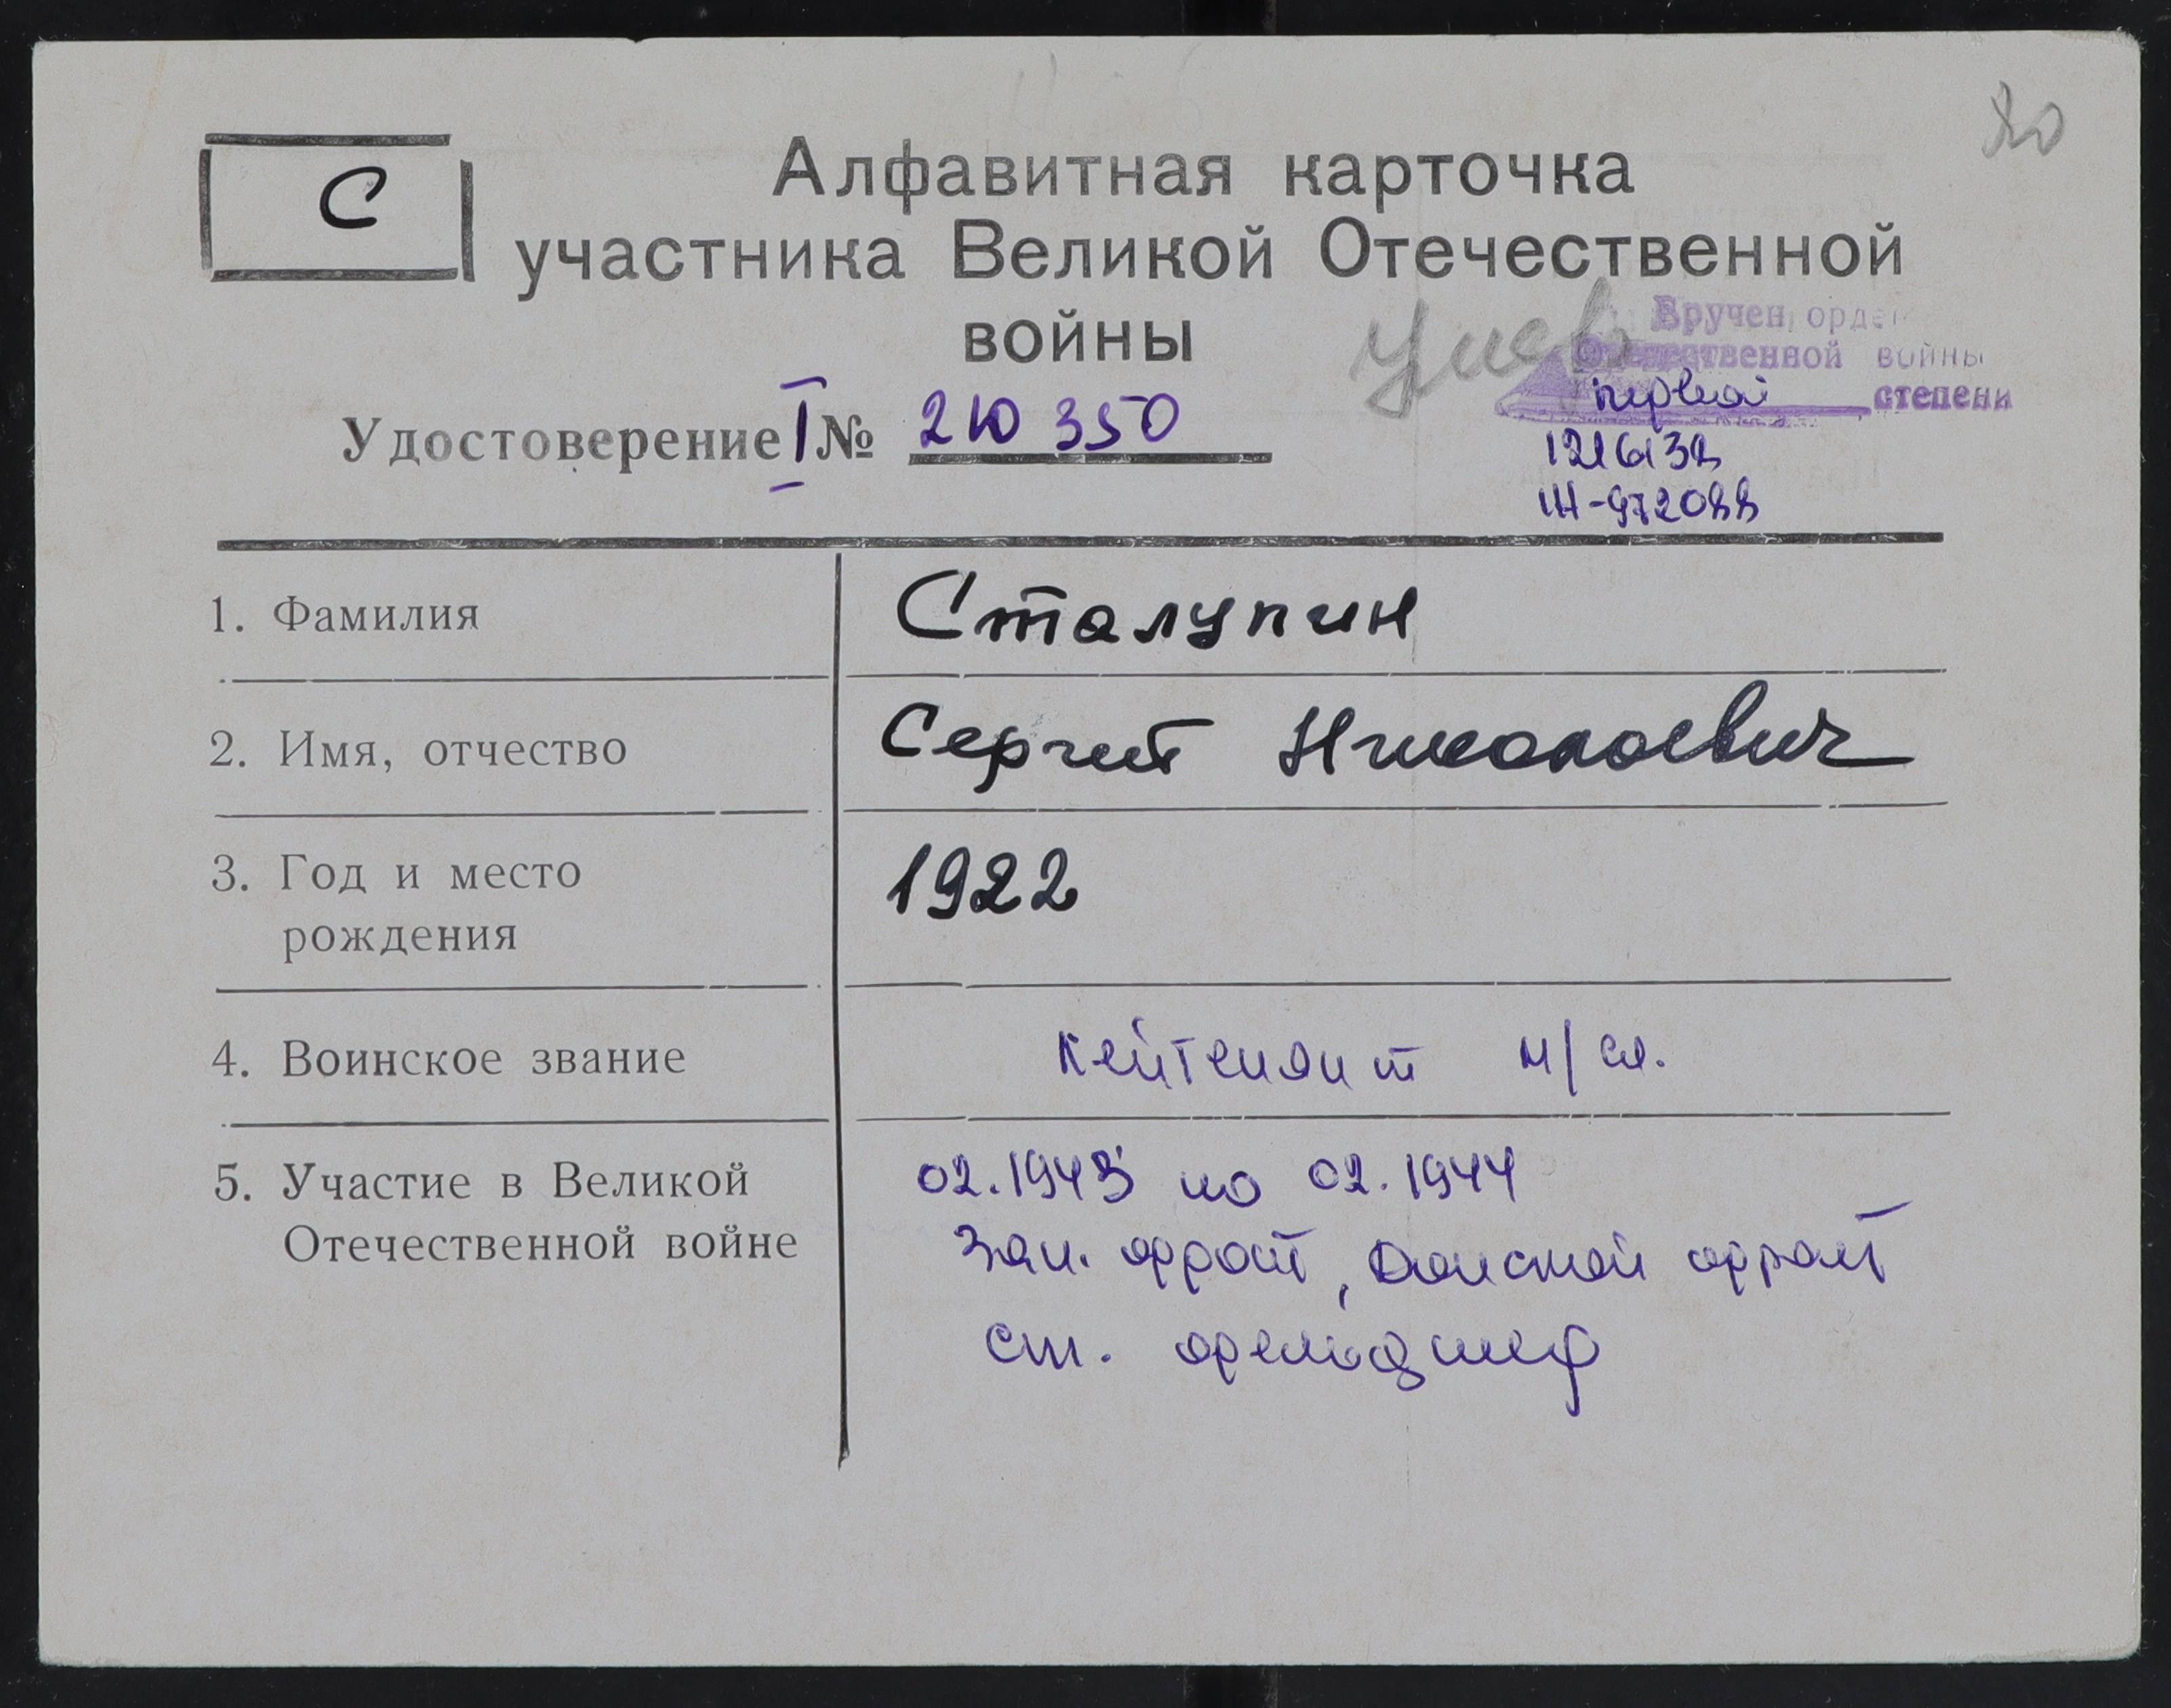 80
С
Алфавитная карточка
участника Великой Отечественной
войны
Умер
Вручен орден
Отечественной войны
первой степени
Удостоверение I № 210 350
1216132
1. Фамилия Сталупин
2. Имя, отчество Сергей Николаевич
3. Год и место 1922
рождения
4. Воинское звание лейтенант м/сл.
5. Участие в Великой 02.1943 по 02.1944
Отечественной войне Зап. фронт, Донской фронт
ст. фельдшер